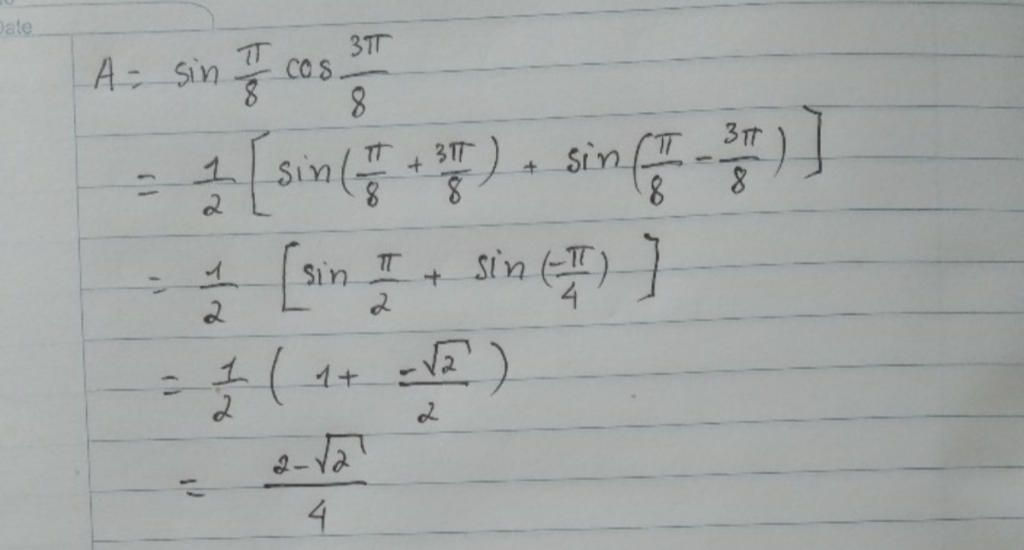 Date
A = sin π/8 cos 3π/8
= 1/2 [ sin(π/8 + 3π/8) + sin(π/8 - 3π/8) ]
= 1/2 [ sin π/2 + sin (-π/4) ]
= 1/2 ( 1 + -√2/2 )
= 2-√2/4